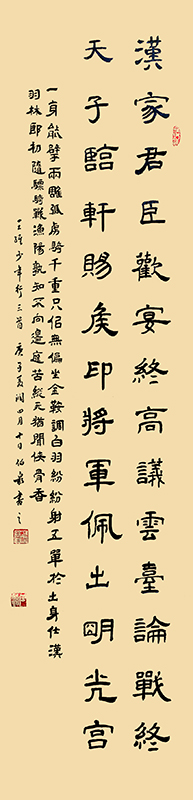 漢家君臣歡宴終高議雲臺論戰終
天子臨軒賜侯印將軍佩出朙光宮
一身能擘兩雕弧虜騎千重只侣無偏坐金鞍調白羽紛紛射五單於出身仕漢
羽林郎初隨驃騎戰漁陽孰知不向邊庭苦縱死猶聞俠骨香
王維少年行三首 庚子夏閏四月十日伯書之